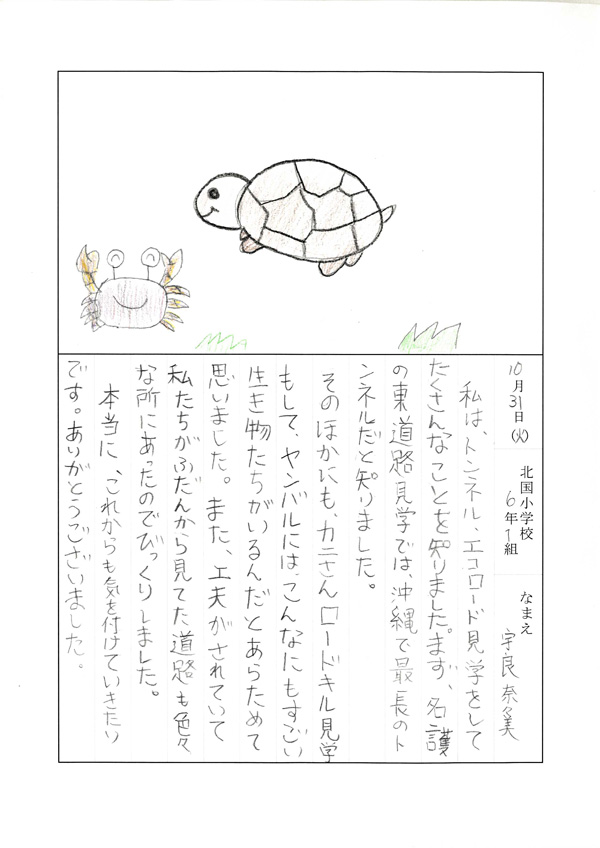 10月31日(火) 北国小学校 6年1組 なまえ 宇良奈々美
私は、トンネル、エコロード見学をして
たくさんなことを知りました。まず、名護
の東道路見学では、沖縄で最長のト
ンネルだと知りました。
そのほかにも、カニさんロードキル見学
もして、ヤンバルには、こんなにもすごい
生き物たちがいるんだとあらためて
思いました。また、工夫がされていて
私たちがふだんから見てた道路も色々
な所にあったのでびっくりしました。
本当に、これからも気を付けていきたい
です。ありがとうございました。